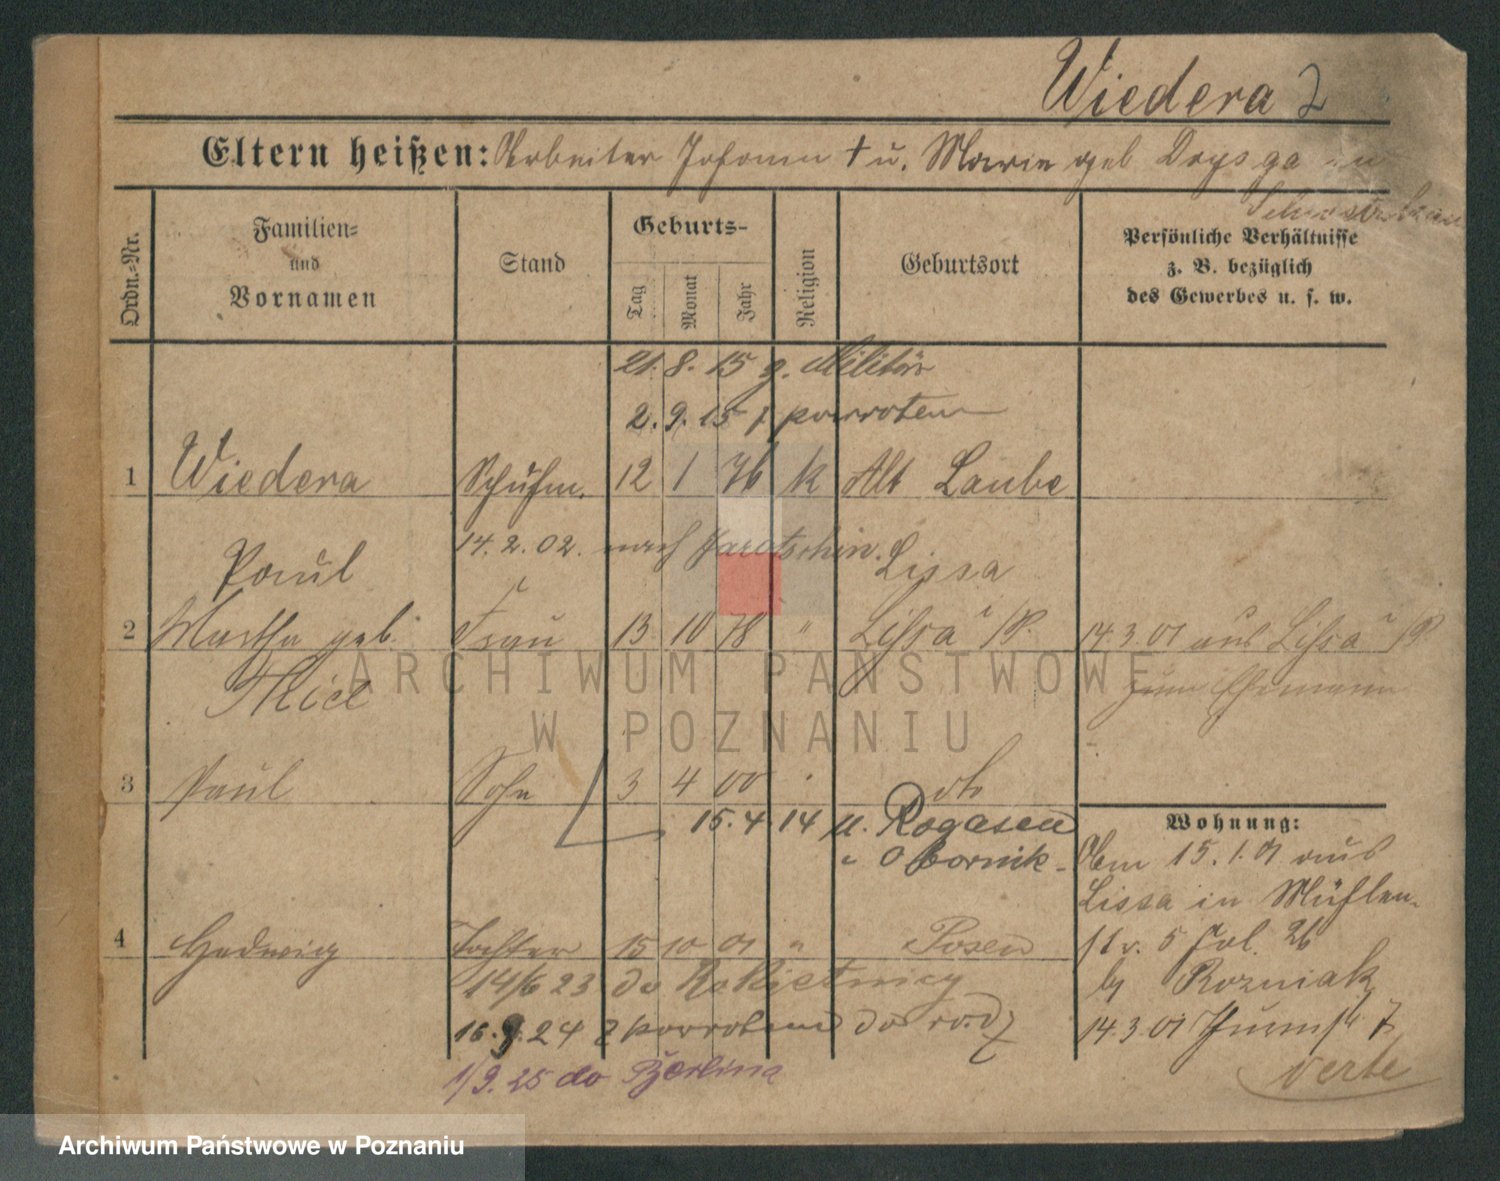 Wiedera 2
Eltern heißen: Arbeiter Johann † u. Marie geb Drysga
Ordn.=Nr.
Familien= und Vornamen
Stand
Geburts-
Tag
Monat
Jahr
Religion
Geburtsort
Persönliche Verhältnisse z. B. bezüglich des Gewerbes u. s. w.
21. 8. 15 z. Militär
2. 9. 15 z powrotem
1 Wiedera Schuhm. 12 1 76 k Alt Laube
14. 2. 02. nach Jarotschin.
Paul Lissa
2 Martha geb. Frau 13 10 78 " Lissa i/P. 14.3.01 aus Lissa i/P.
Thiel zum Ehemann
3 Paul Sohn 3 4 00 do
15. 4. 14 u. Rogasen
Obornik
Wohnung:
15. 1. 01 aus
Lissa in Mühlen-
str. 5
4 Hedwig Tochter 15 10 01 " Posen
14/6 23 do Rokietnicy
b/ Rozniak
16. 9. 24 z powrotem do rodz
14.3.01
1/9. 25 do Berlina
verte
ARCHIWUM PAŃSTWOWE
W POZNANIU
Archiwum Państwowe w Poznaniu